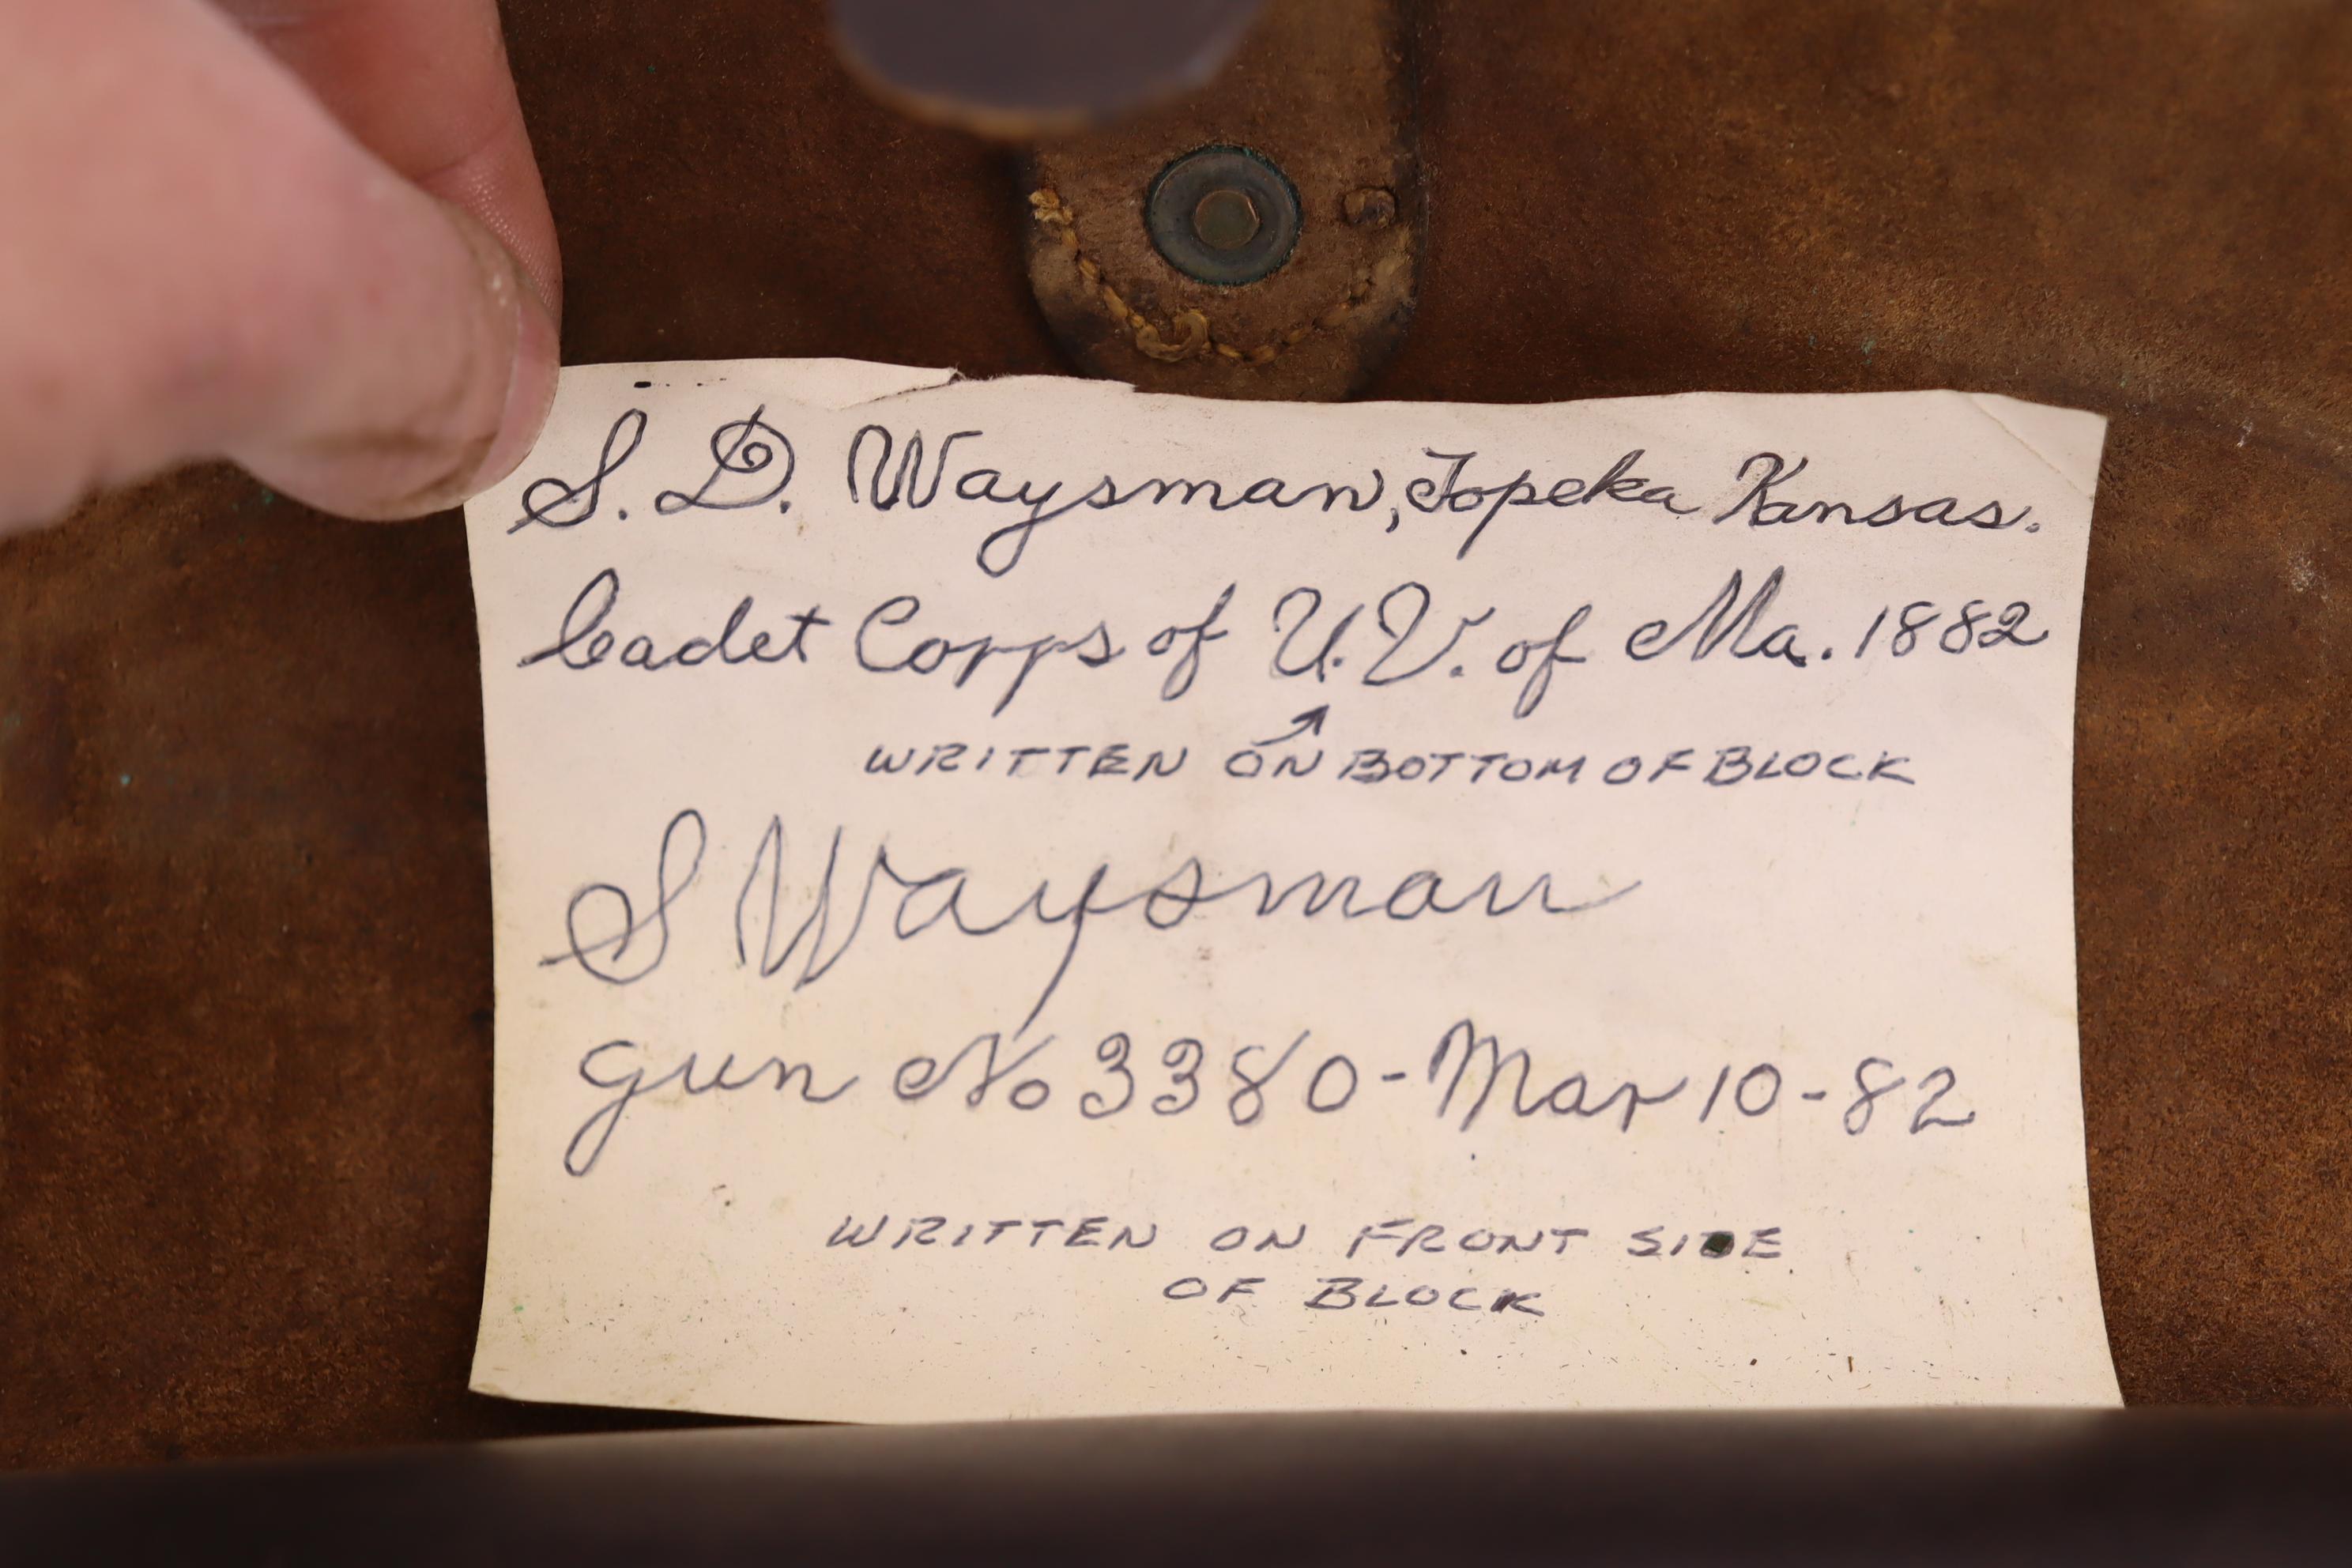 S. D. Waysman, Topeka Kansas.
Cadet Corps of U.V. of Ma. 1882
WRITTEN ON BOTTOM OF BLOCK
S Waysman
gun No 3380 - Mar 10 - 82
WRITTEN ON FRONT SIDE
OF BLOCK